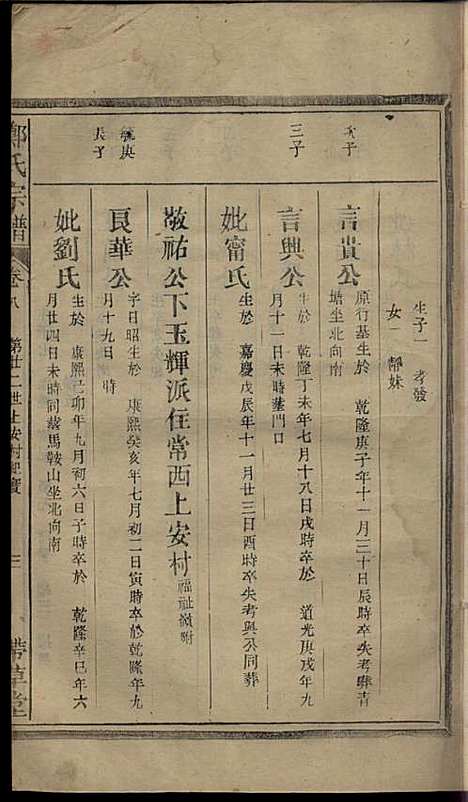 生子一 孝發
女一 靜妹
次子
言貴公
原行基生於 乾隆庚子年十一月三十日辰時卒失考葬青
塘坐北向南
三子
言興公
生於 乾隆丁未年七月十八日戌時卒於 道光庚戌年九
月十一日未時葬門口
妣甯氏
生於 嘉慶戊辰年十一月廿三日酉時卒失考與公同葬
敬祐公下玉輝派住常西上安村
福祉嶺附
毓庚
長子
良華公
字日昭生於 康熙癸亥年七月初二日寅時卒於乾隆年九
月十九日 時
妣劉氏
生於 康熙己卯年九月初六日子時卒於 乾隆辛巳年六
月廿四日未時同葬馬鞍山坐北向南
鄭氏宗譜
卷八
第廿二世上安村
帶草堂